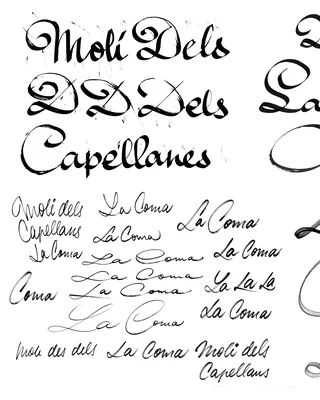 Molí Dels
D D Dels
Capellanes
Molí dels
Capellans
La Coma
La Coma
La Coma
La Coma
La Coma
La Coma
La Coma
La Coma
Coma
Y La La
La Coma
La Coma
La Coma
Molí dels
Capellans
La